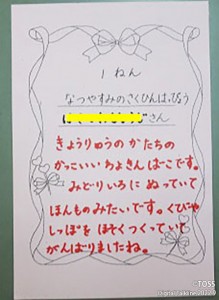 1ねん
なつやすみのさくひんはっぴょう
さん
きょうりゅうの かたちの
かっこいい ちょきんばこです。
みどりいろに ぬっていて
ほんものみたいです。くびや
しっぽを ほそくつくっていて
がんばりましたね。
©TOSS